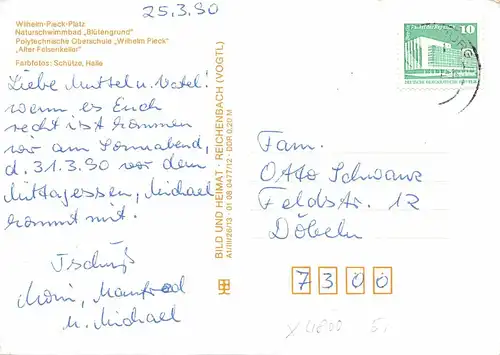 25.3.90
Wilhelm-Pieck-Platz
Naturschwimmbad „Blütengrund"
Polytechnische Oberschule „Wilhelm Pieck"
„Alter Felsenkeller"
Farbfotos: Schütze, Halle
Liebe Muttel u. Vatel!
wenn es Euch
recht ist kommen
wir am Sonnabend,
d. 31.3.90 vor dem
Mittagessen, Michael
kommt mit.
Tschüß
Moni, Manfred
u. Michael
BILD UND HEIMAT · REICHENBACH (VOGTL)
A1/III/26/13 · 01 08 0477/12 · DDR 0,20 M
10
Fam.
Otto Schwanz
Feldstr. 12
Döbeln
7300